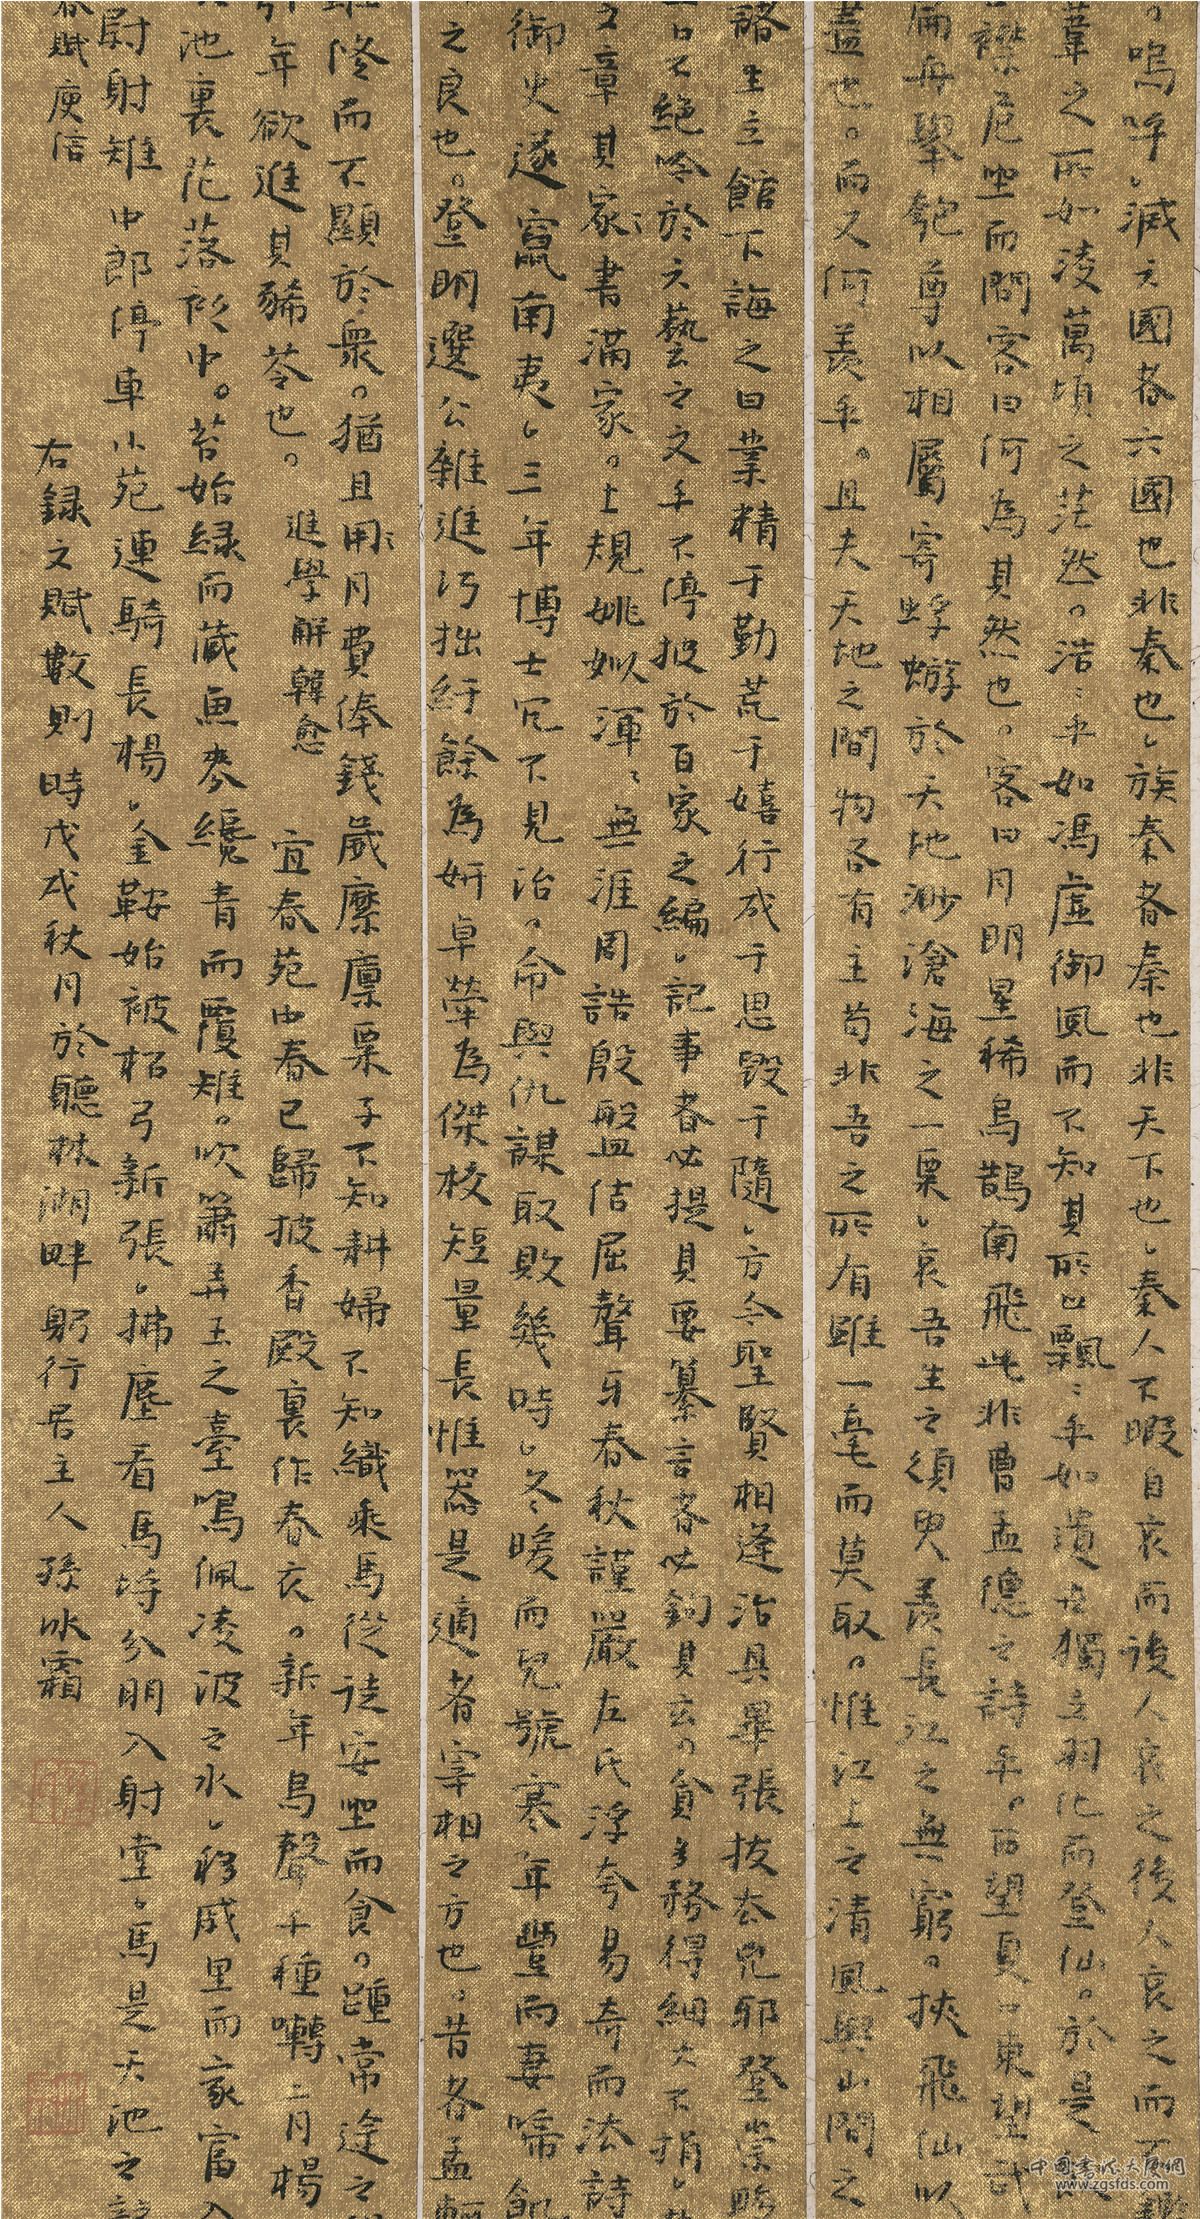 嗚呼滅六國者六國也非秦也族秦者秦也非天下也秦人不暇自哀而後人哀之後人哀之而不鑑
葦之所如淩萬頃之茫然浩〻乎如馮虛御風而不知其所以飄〻乎如遺世獨立羽化而登仙於是飲
襟危坐而問客曰何為其然也客曰月明星稀烏鵲南飛此非曹孟德之詩乎西望夏口東望武
扁舟舉匏尊以相屬寄蜉蝣於天地渺滄海之一粟哀吾生之須臾羨長江之無窮挾飛仙以
盡也而又何羨乎且夫天地之間物各有主苟非吾之所有雖一毫而莫取惟江上之清風與山間之
諸生立館下誨之曰業精于勤荒于嬉行成于思毀于隨方今聖賢相逢治具畢張拔去兇邪登崇畯
口不絕吟於六藝之文手不停披於百家之編記事者必提其要纂言者必鉤其玄貪多務得細大不捐
文章其家書滿家上規姚姒渾〻無涯周誥殷盤佶屈聱牙春秋謹嚴左氏浮夸易奇而法詩
御史遂竄南夷三年博士冗不見治命與仇謀取敗幾時冬暖而兒號寒年豐而妻啼飢
之良也登明選公雜進巧拙紆餘為妍卓犖為傑校短量長惟器是適者宰相之方也昔者孟軻
雖修而不顯於衆猶且用〻月費俸錢歲縻廩粟子不知耕婦不知織乘馬從徒安坐而食踵常途之
引年欲進其豨苓也 進學解韓愈 宜春苑中春已歸披香殿裏作春衣新年鳥聲千種囀二月楊
池裏花落衫中苔始綠而藏魚麥纔青而覆雉吹簫弄玉之臺鳴佩凌波之水移戚里而家富入
尉射雉中郎停車小苑連騎長楊金鞍始被柘弓新張拂塵看馬埒分朋入射堂馬是天池之
春賦庾信 右録文賦數則時戊戌秋月於聽林湖畔躬行居主人孫冰霜
中国书法大厦网
www.zgsfds.com